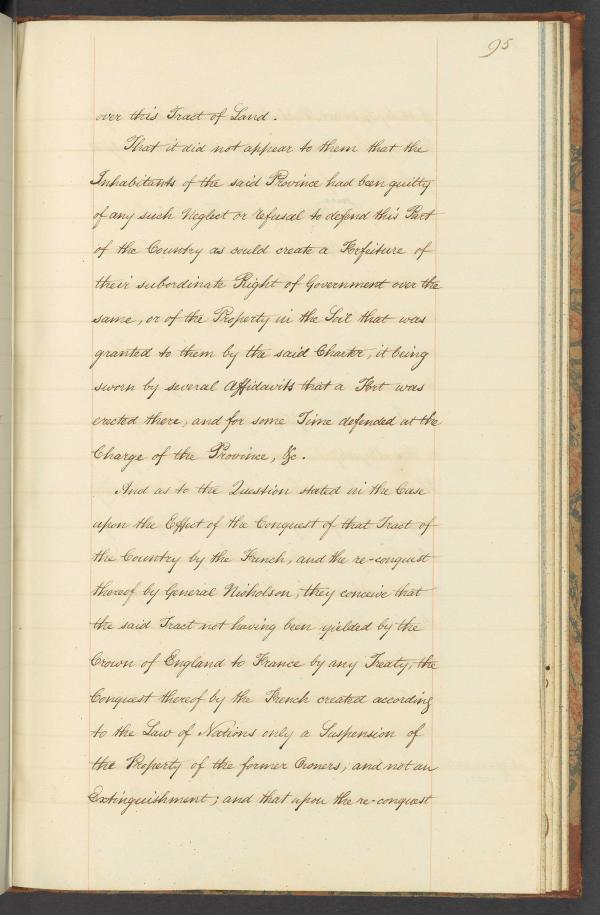 95
over this Tract of Land.
That it did not appear to them that the
Inhabitants of the said Province had been guilty
of any such Neglect or refusal to defend this Part
of the Country as could create a Forfeiture of
their subordinate Right of Government over the
same, or of the Property in the Soil that was
granted to them by the said Charter, it being
sworn by several Affidavits that a Fort was
erected there, and for some Time defended at the
Charge of the Province, &c.
And as to the Question stated in the Case
upon the Effect of the Conquest of that Tract of
the Country by the French, and the re-conquest
thereof by General Nicholson, they conceive that
the said Tract not having been yielded by the
Crown of England to France by any Treaty, the
Conquest thereof by the French created according
to the Law of Nations only a Suspension of
the Property of the former Owners, and not an
Extinguishment; and that upon the re-conquest